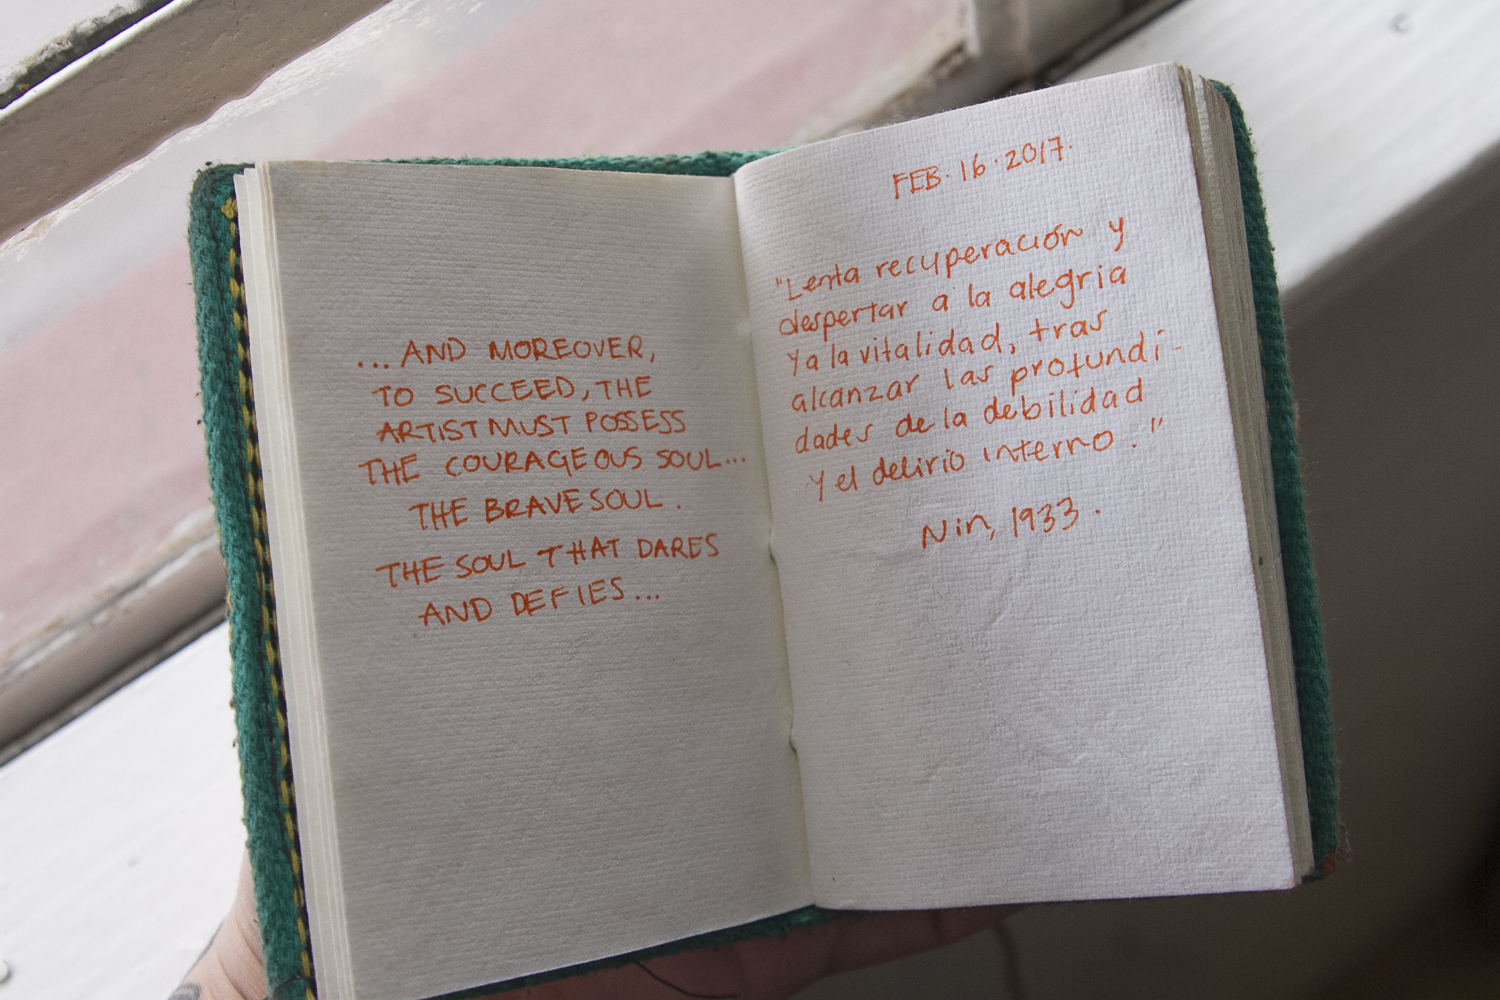 ...AND MOREOVER,
TO SUCCEED, THE
ARTIST MUST POSSESS
THE COURAGEOUS SOUL...
THE BRAVE SOUL.
THE SOUL THAT DARES
AND DEFIES...
FEB. 16. 2017.
"Lenta recuperación y
despertar a la alegria
y a la vitalidad, tras
alcanzar las profundi-
dades de la debilidad
y el delirio interno."
Nin, 1933.